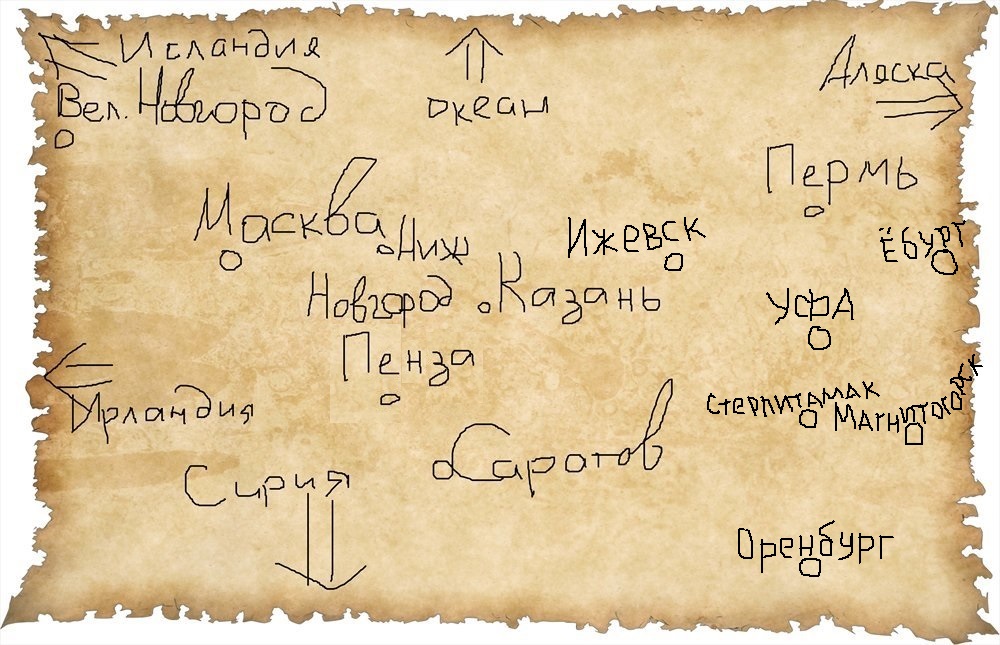 Исландия
Вел. Новгород
океан
Аляска
Пермь
Масква
Ниж
Новгород
Ижевск
Ёбург
Казань
Уфа
Пенза
Ирландия
Стерлитамак
Магнитогорск
Саратов
Сирия
Оренбург